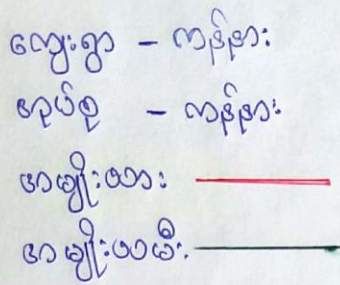 ကျေးရွာ - ကန်နား
အုပ်စု - ကန်နား
အမျိုးသား
အမျိုးသမီး